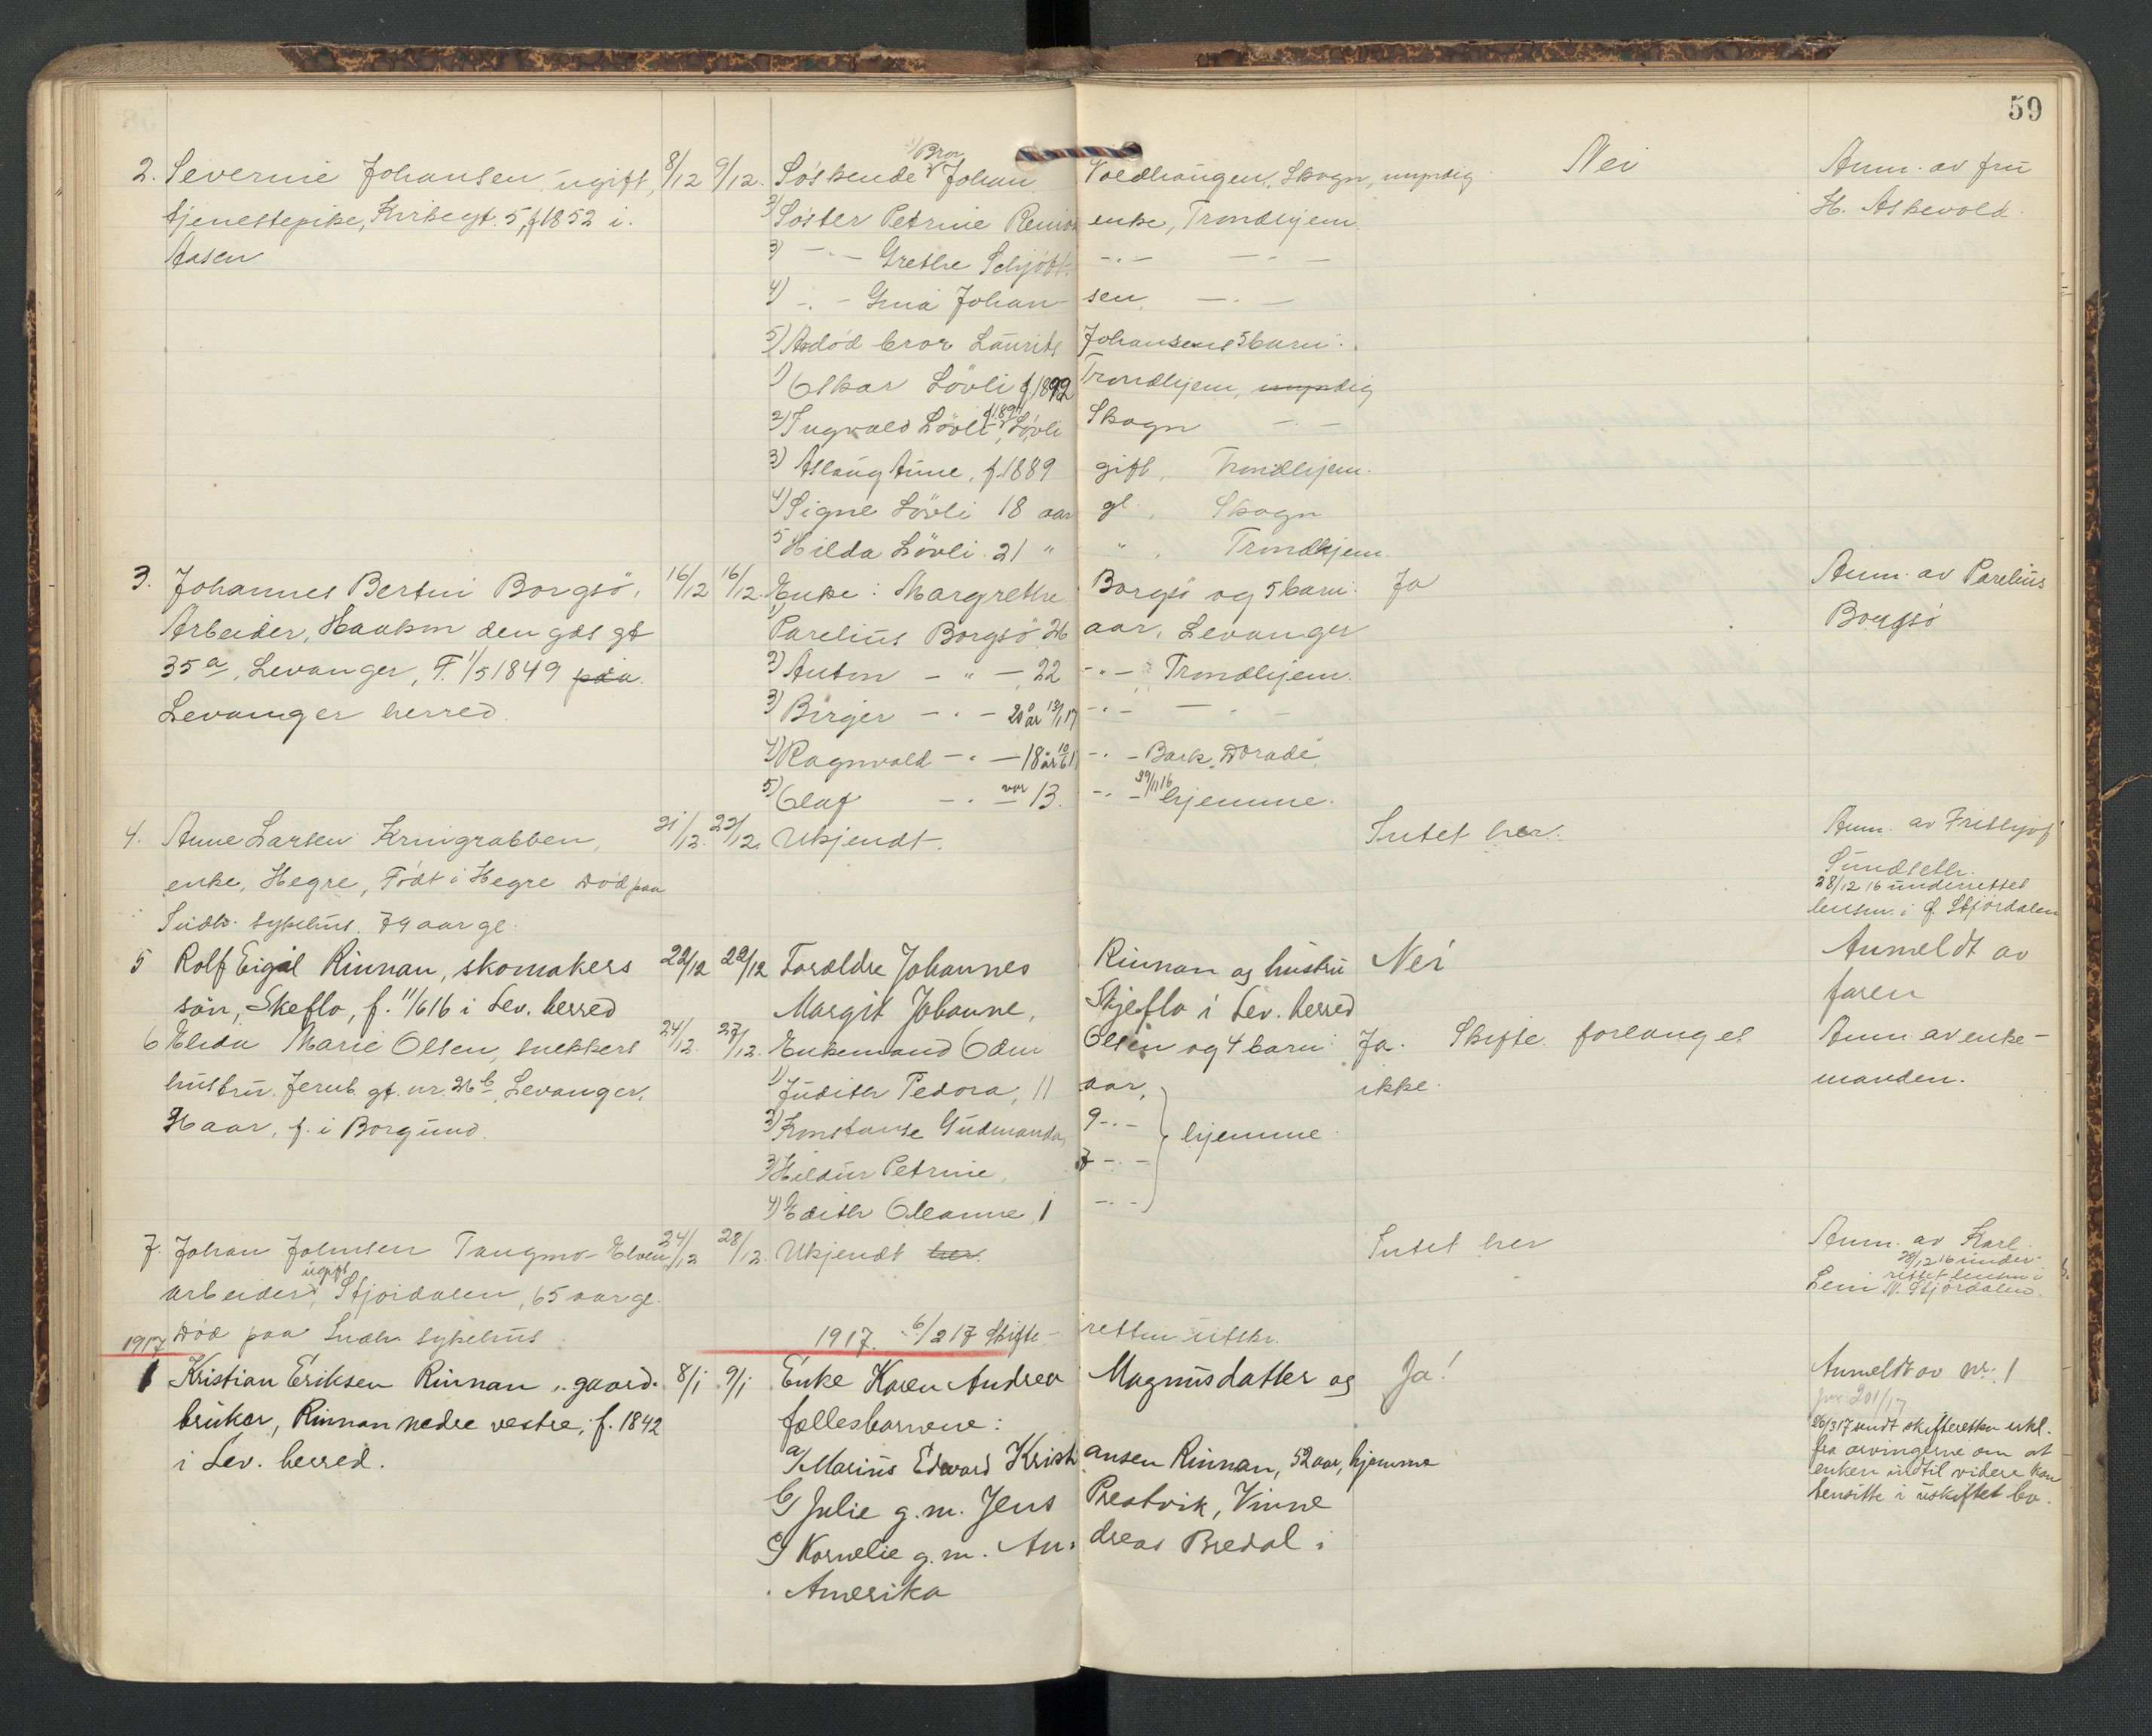 59
2. Severine Johansen, ugift, 8/12 9/12. Söskende 1) Bror Johan Voldhaugen, Skogn, myndig Nei Anm. av fru
tjenestepike, Kirkegt. 5, f 1852 i 2) Söster Petrine enke, Trondhjem. H. Askevold.
Aasen 3) — . — Grethe Schjött. — . — — . —
4) . — Gina Johan- sen, — . —
5) Avdöd bror Laurits Johansens 5 barn:
1) Oskar Lövli f 1892 Trondhjem, myndig
2) Ingvald Lövli Lövli Skogn — . —
3) Aslaug Aune, f. 1889 gift, Trondhjem.
4) Signe Lövli 18 aar gl., Skogn
5 Hilda Lövli 21 " " , Trondhjem.
3. Johannes Bertin Borgsö, 16/12 16/12. Enke: Margrethe Borgsö og 5 barn: Ja Anm. av Parelius
Arbeider, Haakon den gds gt 1) Parelius Borgsö 26 aar, Levanger Borgsö
35a, Levanger, F. 1/5 1849 paa 2) Anton — " — 22 — " — Trondhjem.
Levanger herred. 3) Birger — . — 20 år 13/1 17 — . — — . —
4) Ragnvald — . — 18 år — . — Bark "Dorade"
5) Olaf — . — var 13. — . — 29/11 16 hjemme.
4. Anne Larsen Kringrabben, 21/12. 22/12. Ukjendt. Intet her. Anm. av Frithjof
enke, Hegre, Födt i Hegre Död paa Sundseth.
Indh. sykehus. 79 aar gl. 28/12 16 underrettet
lensm. i Stjördalen
5 Rolf Eigil Rinnan, skomakers 22/12 22/12 Foraldre Johannes Rinnan og hustru Nei Anmeldt av
sön, Skeflo, f. 11/6 16 i Lev. herred Margit Johanne, Skjeflo i Lev. herred faren
6 Elida Marie Olsen, snekkers 24/12. 27/12. Enkemand Odin Olsen og 4 barn: Ja. Skifte forlanges Anm av enke-
hustru. Jernb. gt. nr. 26b, Levanger, 1) Judith Pedora, 11 aar, ikke. manden.
36 aar, f. i Borgund. 2) Konstanse Gudmanda, 9 — . — hjemme.
3) Hildur Petrine, 7 — . —
4) Edith Oleanne, 1 — . —
7. Johan Johnsen Tangmo-Elven 24/12 28/12. Ukjendt her. Intet her Anm. av Karl
arbeider, ugift, Stjördalen, 65 aar gl. 28/12 16 under-
rettet lensm i
Lein N. Stjördalen.
Död paa Indh. sykehus.
1917 1917. 6/2 17 Skifte- retten utskr.
1 Kristian Eriksen Rinnan, gaard- 8/1 9/1 Enke Karen Andrea Magnusdatter og Ja! Anmeldt av nr. 1
bruker, Rinnan nedre vestre, f. 1842 fællesbarnene: 201/17
i Lev. herred. a/ Marius Edvard Kristi ansen Rinnan, 52 aar, hjemme
26/3 17 sendt skifteretten erkl.
fra arvingerne om at
enken indtil videre kan
hensitte i uskiftet bo.
b/ Julie g.m. Jens Prestvik, Vinne
c/ Kornelie g.m. An- dreas Bredal i
Amerika